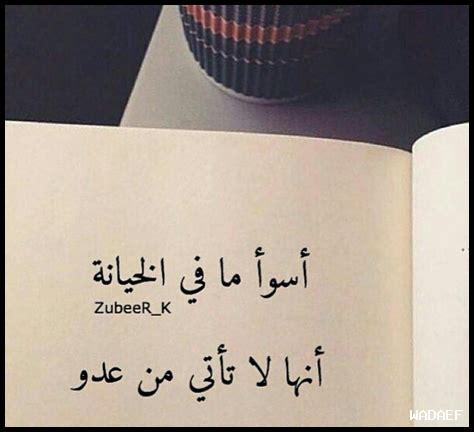 أسوأ ما في الخيانة
ZubeeR_K
أنها لا تأتي من عدو
WADAEF